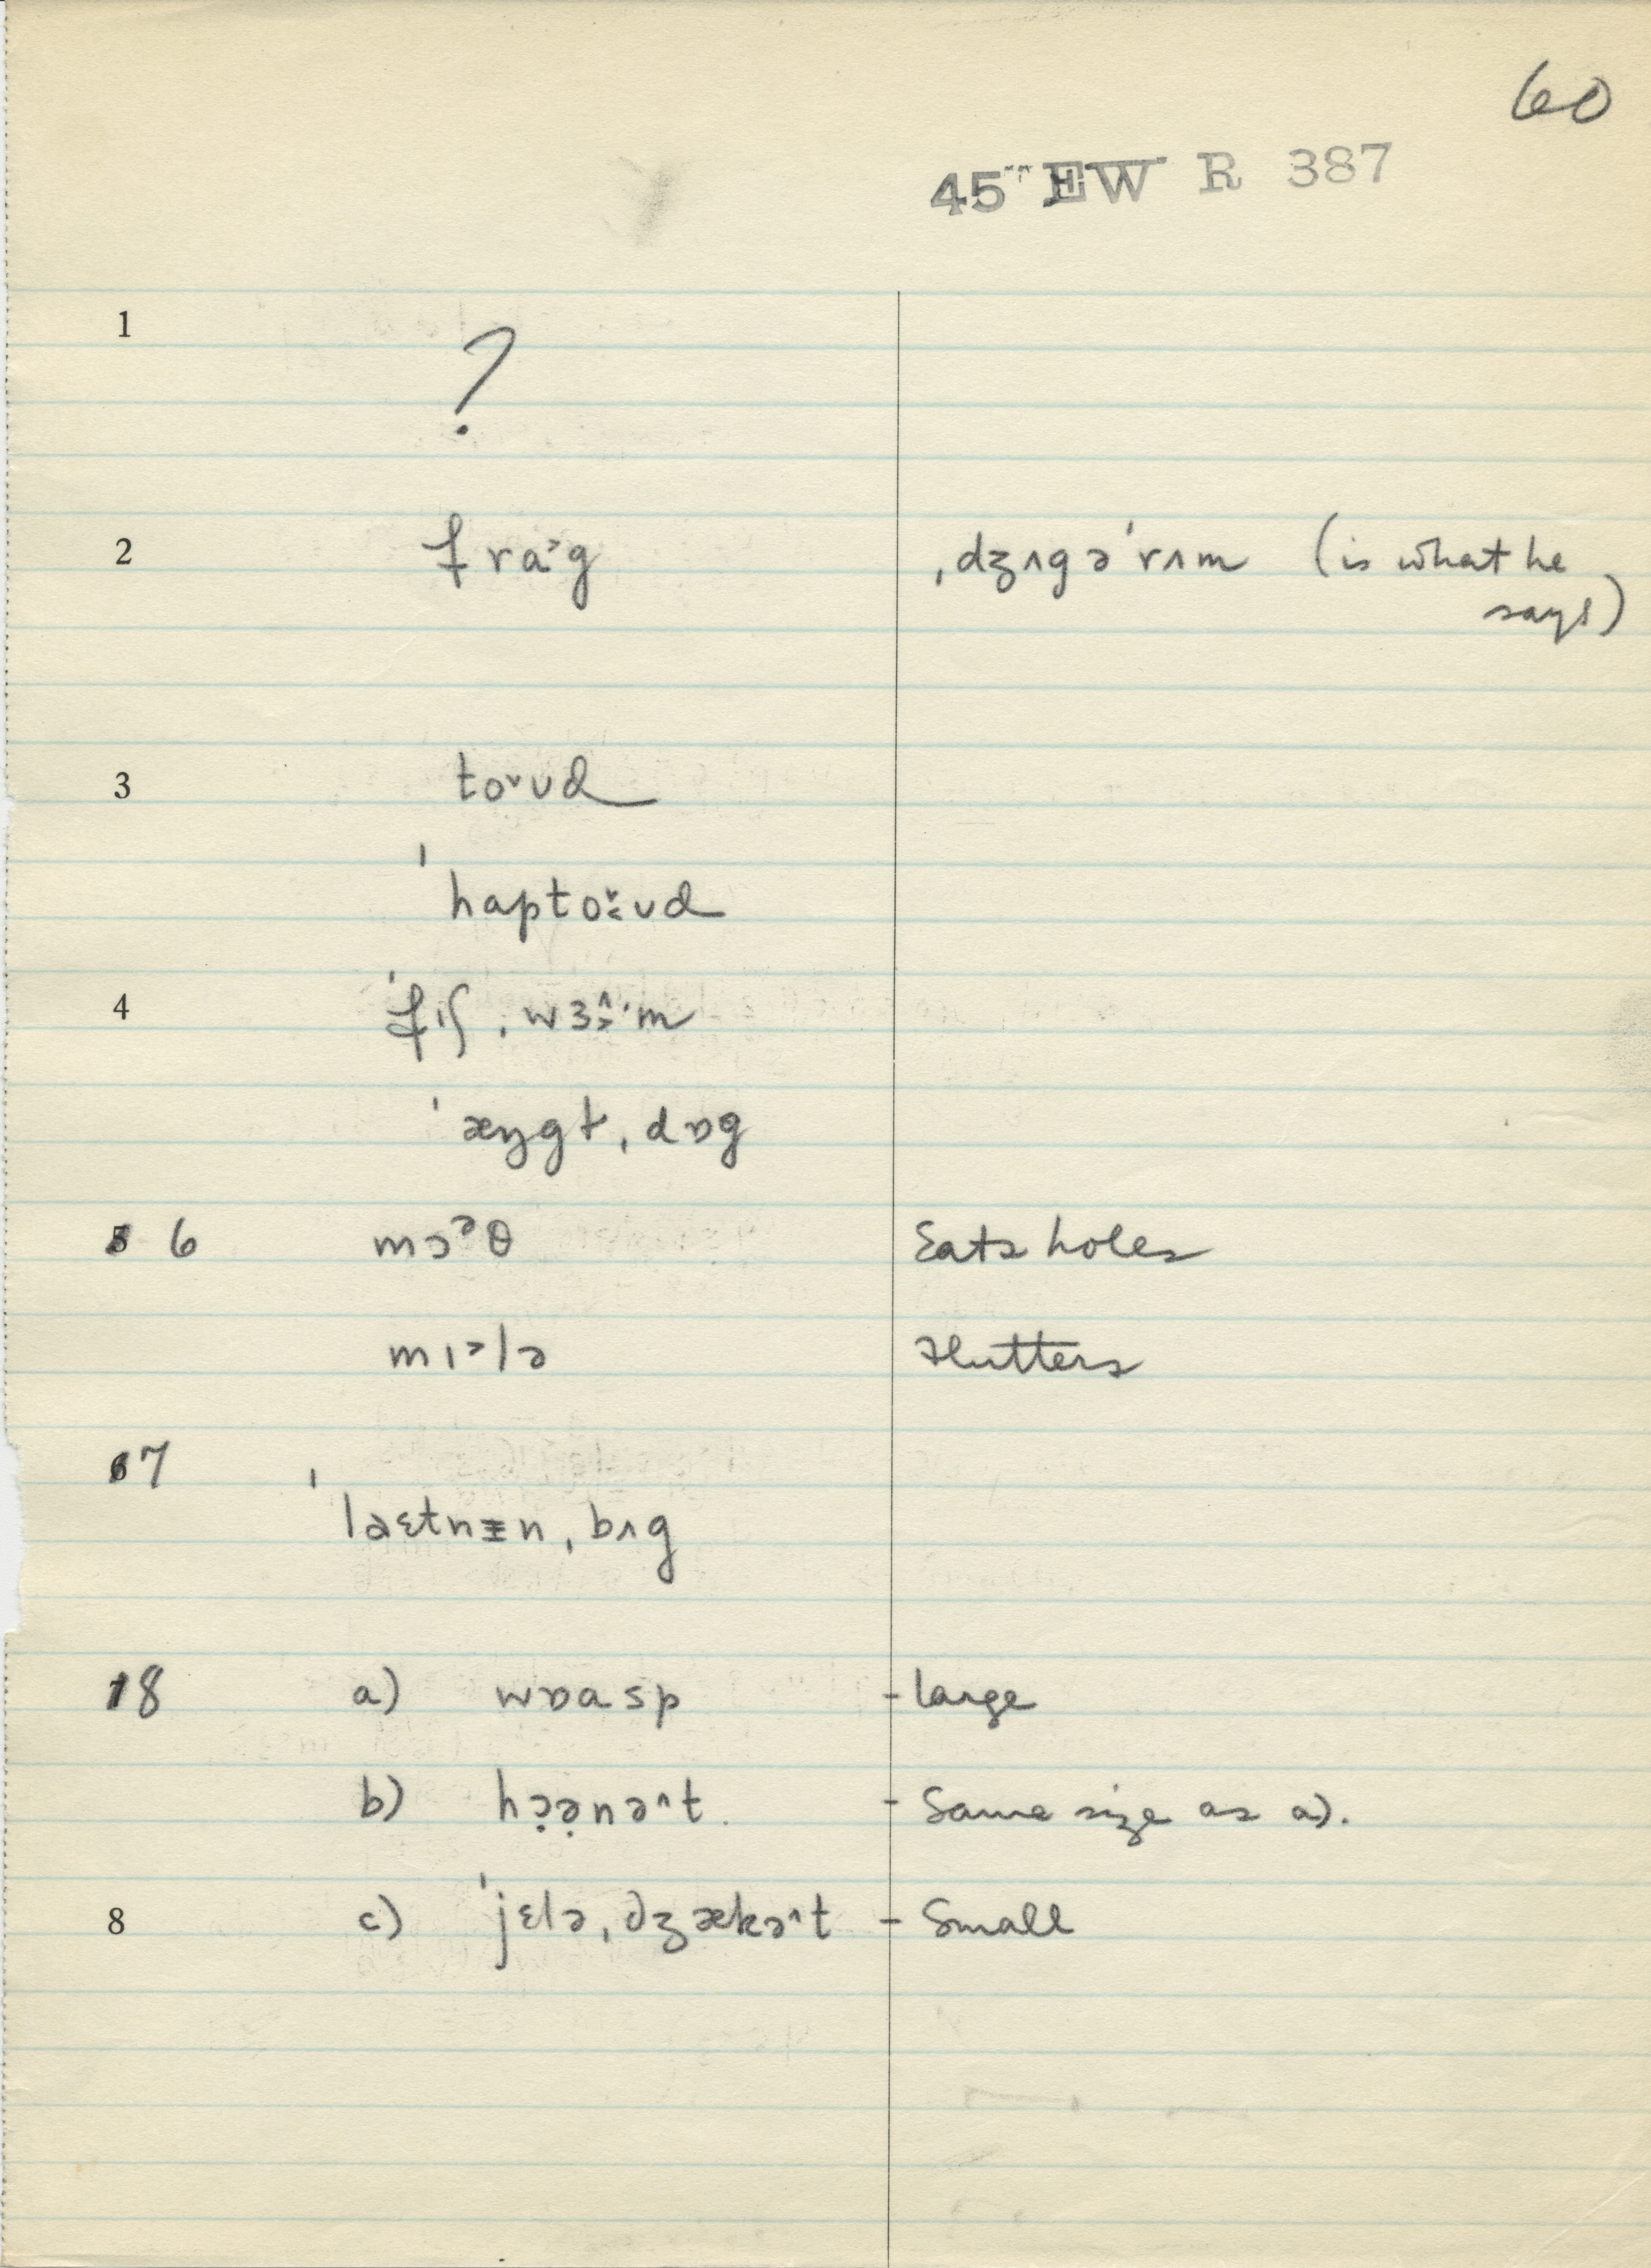 60
45 EW R 387
1 ?
2 fra˃g ˌdʒʌgəˈrʌm (is what he
says)
3 to˅ʊd
ˈhapto˅ʊd
4 ˈfɪʃˌwɜ^ːm
ˈæŋgɫˌdɒg
5 6 mɔᵊθ Eats holes
mɪ˃lə Flutters
6 7
ˈlaɛtnɨnˌbʌg
7 8 a) wɒasp - large
b) hɔ̣ə̣nə^t - Same size as a).
8 c) ˈjɛləˌdʒækə^t - Small